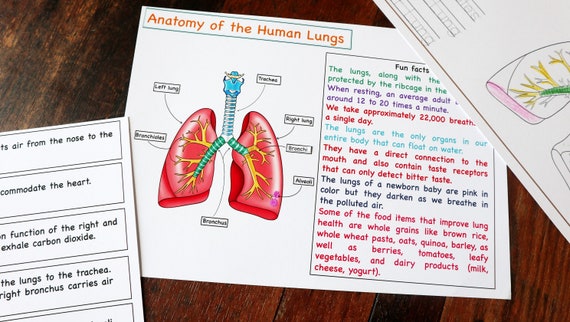 Anatomy of the Human Lungs
Left lung
Trachea
Right lung
Bronchioles
Bronchi
Alveoli
Bronchus
Fun facts
The lungs, along with the
protected by the ribcage in the
When resting, an average adult
around 12 to 20 times a minute.
We take approximately 22,000
a single day.
The lungs are the only organs in our
entire body that can float on water.
They have a direct connection to the
mouth and also contain taste receptors
that can only detect bitter taste.
The lungs of a newborn baby are pink in
color but they darken as we breathe in
the polluted air.
Some of the food items that improve lung
health are whole grains like brown rice,
whole wheat pasta, oats, quinoa, barley, as
well as berries, tomatoes, leafy
vegetables, and dairy products (milk,
cheese, yogurt).
air from the nose to the
the heart.
function of the right and
exhale carbon dioxide.
the lungs to the trachea.
right bronchus carries air